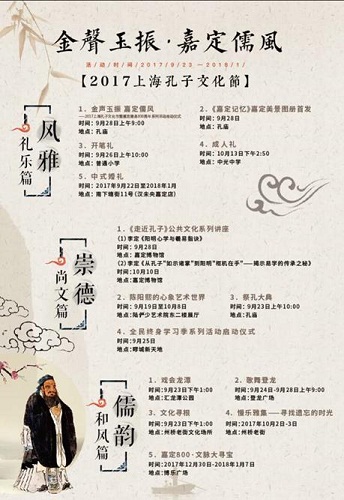 金聲玉振·嘉定儒風
活动时间/2017/9/23—2018/1/
【2017上海孔子文化節】
风雅
礼乐篇
1、金声玉振 嘉定儒风
时间：9月28日上午9:00
地点：孔庙
2、《嘉定记忆》嘉定美景图册首发
时间：9月28日
地点：孔庙
3、开笔礼
时间：9月26日上午10:00
地点：普通小学
4、成人礼
时间：10月13日下午2:50
地点：中光中学
5、中式婚礼
时间：2017年9月22日至2018年1月
地点：南下塘街11号（汉未央嘉定店）
崇德
尚文篇
1、《走近孔子》公共文化系列讲座
(1) 李定《阳明心学与羲易翕诀》
时间：9月28日
地点：嘉定博物馆
(2) 李定《从孔子“如示诸掌”到阳明“枢机在手”——揭示易学的传承之秘》
时间：10月10日
地点：嘉定博物馆
2、陈阳熙的心象艺术世界
时间：9月19日至10月8日
地点：陆俨少艺术院东二楼展厅
3、祭孔大典
时间：9月23日上午10:00
地点：孔庙
4、全民终身学习季系列活动启动仪式
时间：9月25日
地点：疁城新天地
儒韵
和风篇
1、戏会龙潭
时间：9月23日下午1:00
地点：汇龙潭公园
2、歌舞登龙
时间：9月24日-9月28日上午9:00
地点：登龙广场
3、文化寻根
时间：9月23日下午1:00
地点：州桥老街文化场所
4、慢乐雅集——寻找遗忘的时光
时间：2017年10月2日-3日
地点：州桥老街
5、嘉定800·文脉大寻宝
时间：2017年12月30日-2018年1月7日
地点：博乐广场